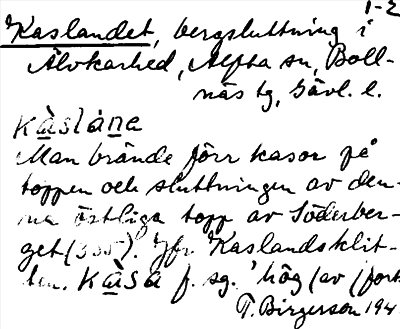 1-2
Kaslandet, bergsluttning i
Älvkarhed, Alfta sn, Boll-
näs tg, Gävl. l.
kàslàne
Man brände förr kasor på
toppen och sluttningen av den-
na östliga topp av Söderber-
get (335). Jfr Kaslandsklit-
ten. kàsa f. sg. 'hög (av
T. Birgerson 194